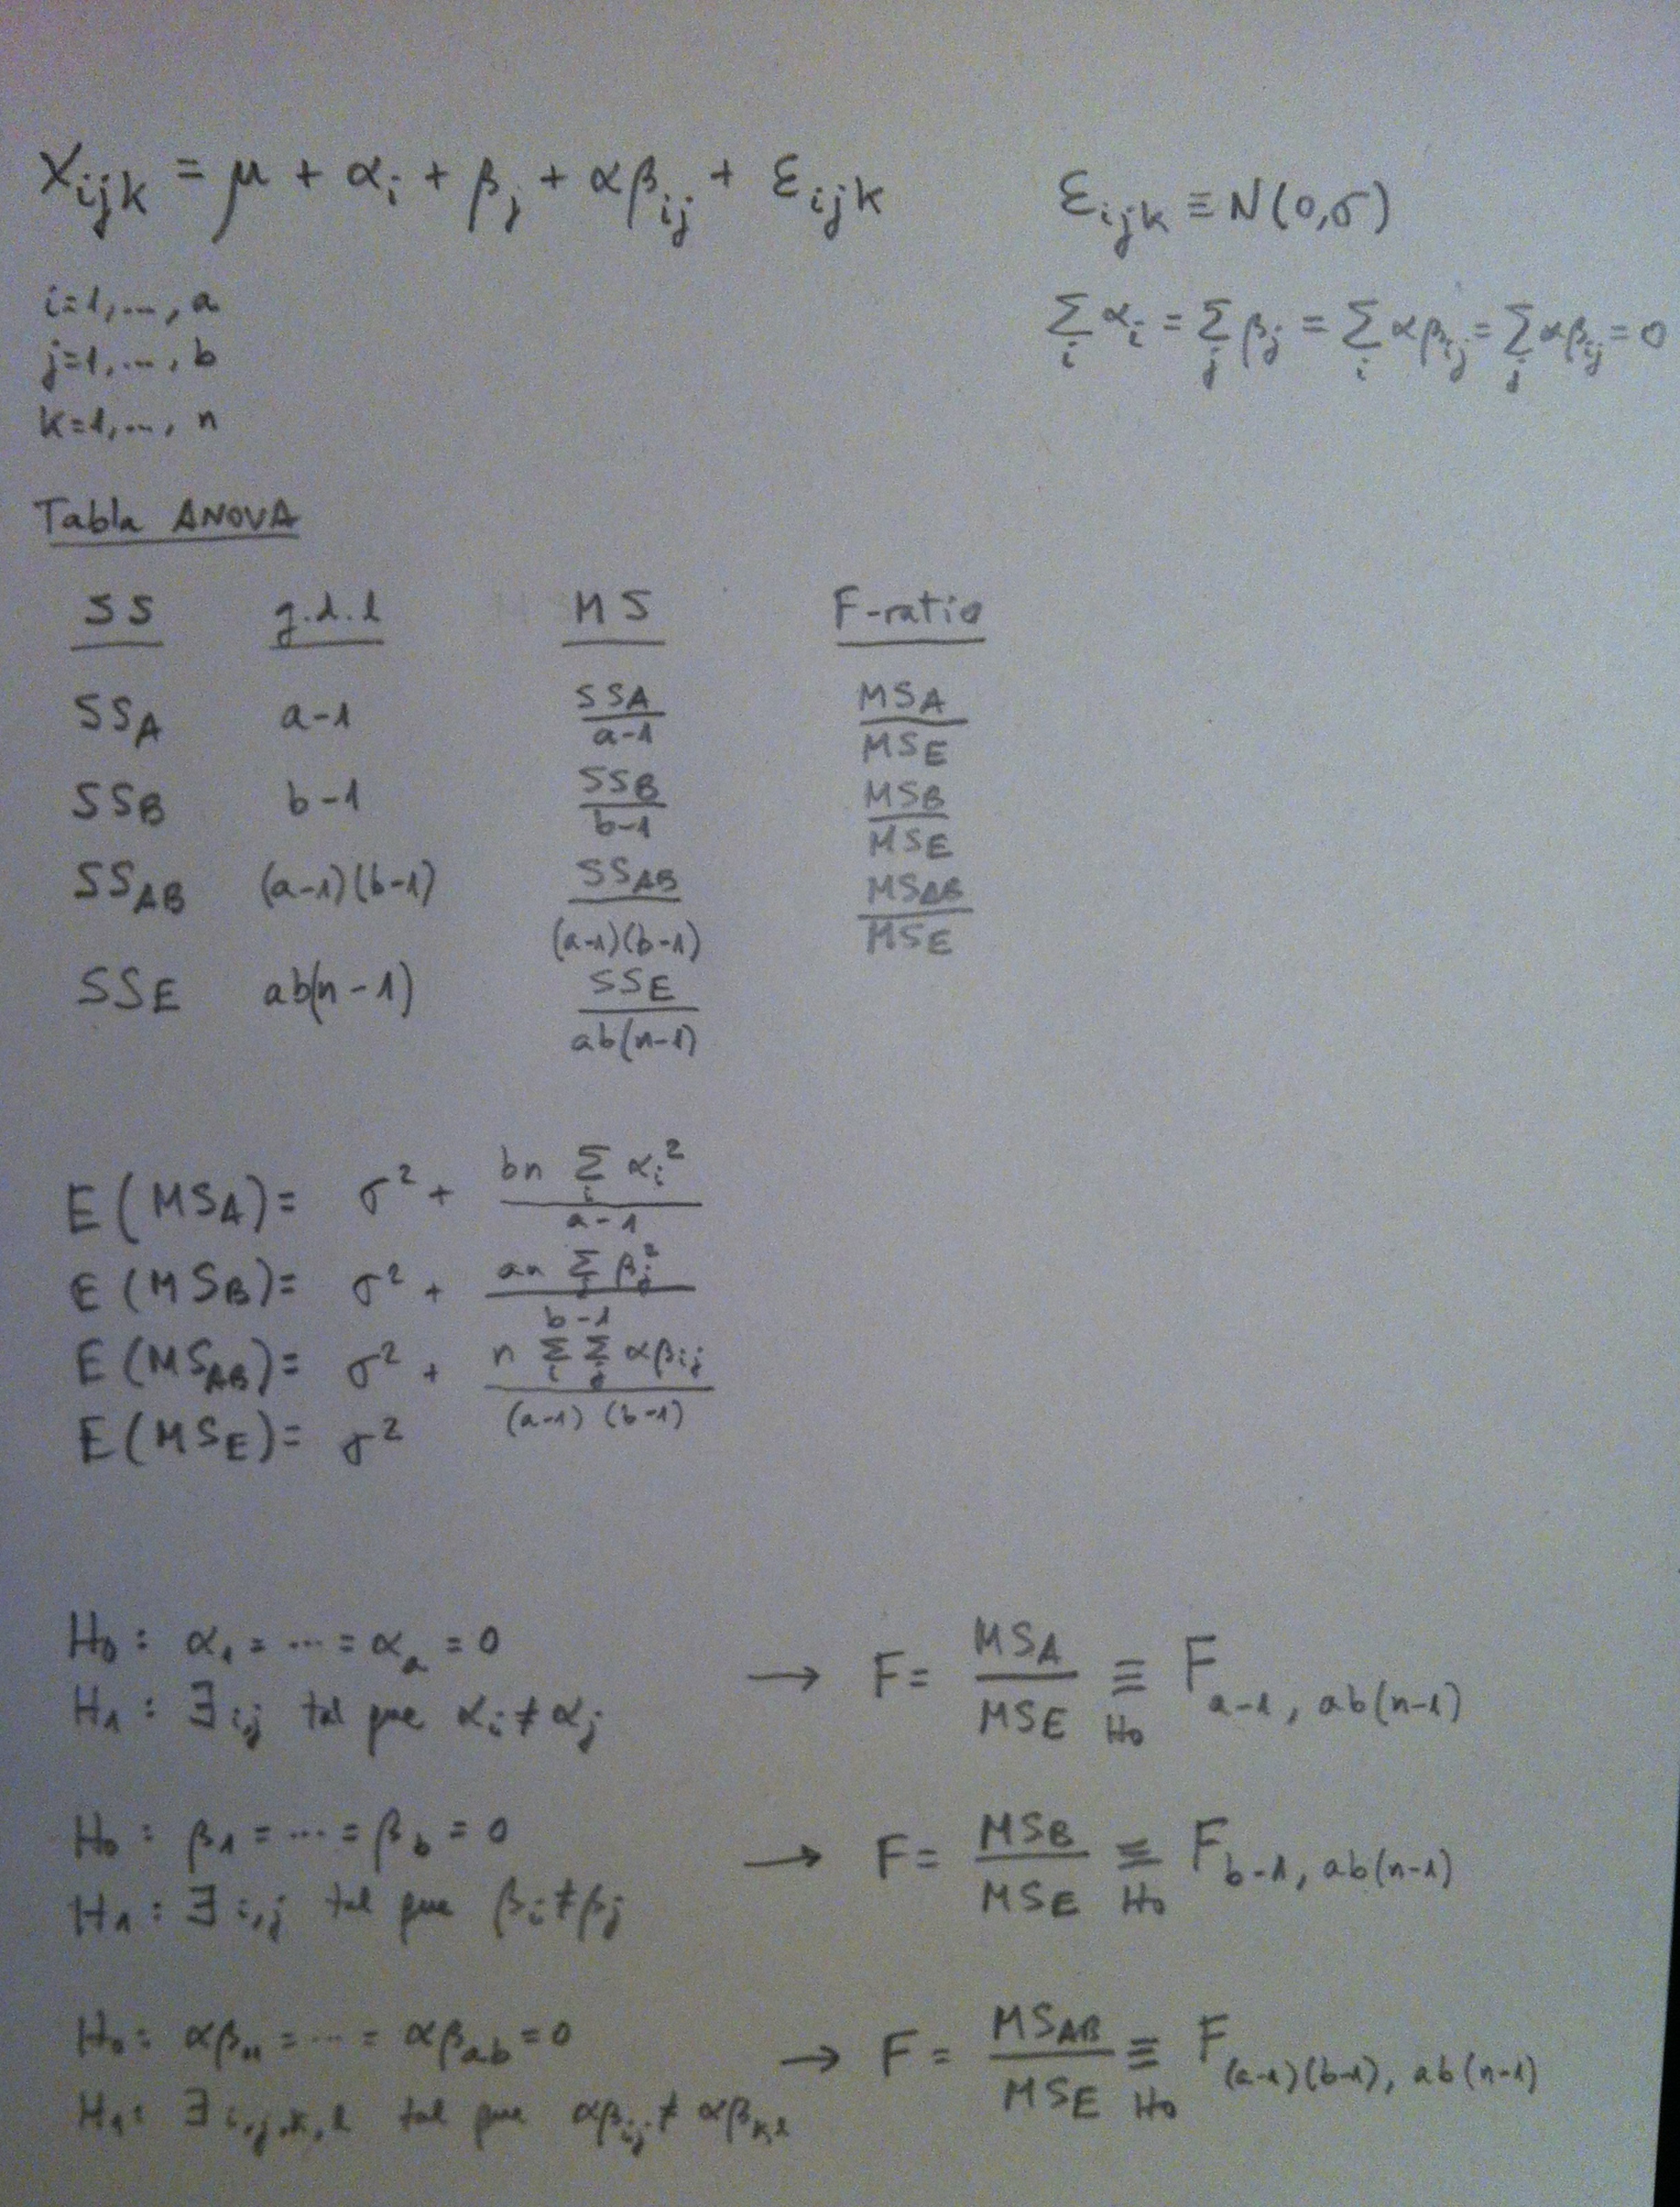 X_ijk = μ + α_i + β_j + αβ_ij + ε_ijk
ε_ijk ≡ N(0,σ)
i=1,..., a
j=1,..., b
k=1,..., n
Σ_i α_i = Σ_j β_j = Σ_i αβ_ij = Σ_j αβ_ij = 0
Tabla ANOVA
SS g.d.l MS F-ratio
SS_A a-1 SS_A/(a-1) MS_A/MS_E
SS_B b-1 SS_B/(b-1) MS_B/MS_E
SS_AB (a-1)(b-1) SS_AB/((a-1)(b-1)) MS_AB/MS_E
SS_E ab(n-1) SS_E/(ab(n-1))
E(MS_A)= σ² + (bn Σ_i α_i²)/(a-1)
E(MS_B)= σ² + (an Σ_j β_j²)/(b-1)
E(MS_AB)= σ² + (n Σ_i Σ_j αβ_ij)/((a-1)(b-1))
E(MS_E)= σ²
H₀: α_1 = ... = α_a = 0
H₁: ∃ i,j tal que α_i ≠ α_j
→ F= MS_A/MS_E ≡_H₀ F_a-1, ab(n-1)
H₀: β_1 = ... = β_b = 0
H₁: ∃ i,j tal que β_i ≠ β_j
→ F= MS_B/MS_E ≡_H₀ F_b-1, ab(n-1)
H₀: αβ_11 = ... = αβ_ab = 0
H₁: ∃ i,j,k,l tal que αβ_ij ≠ αβ_k,l
→ F= MS_AB/MS_E ≡_H₀ F_(a-1)(b-1), ab(n-1)